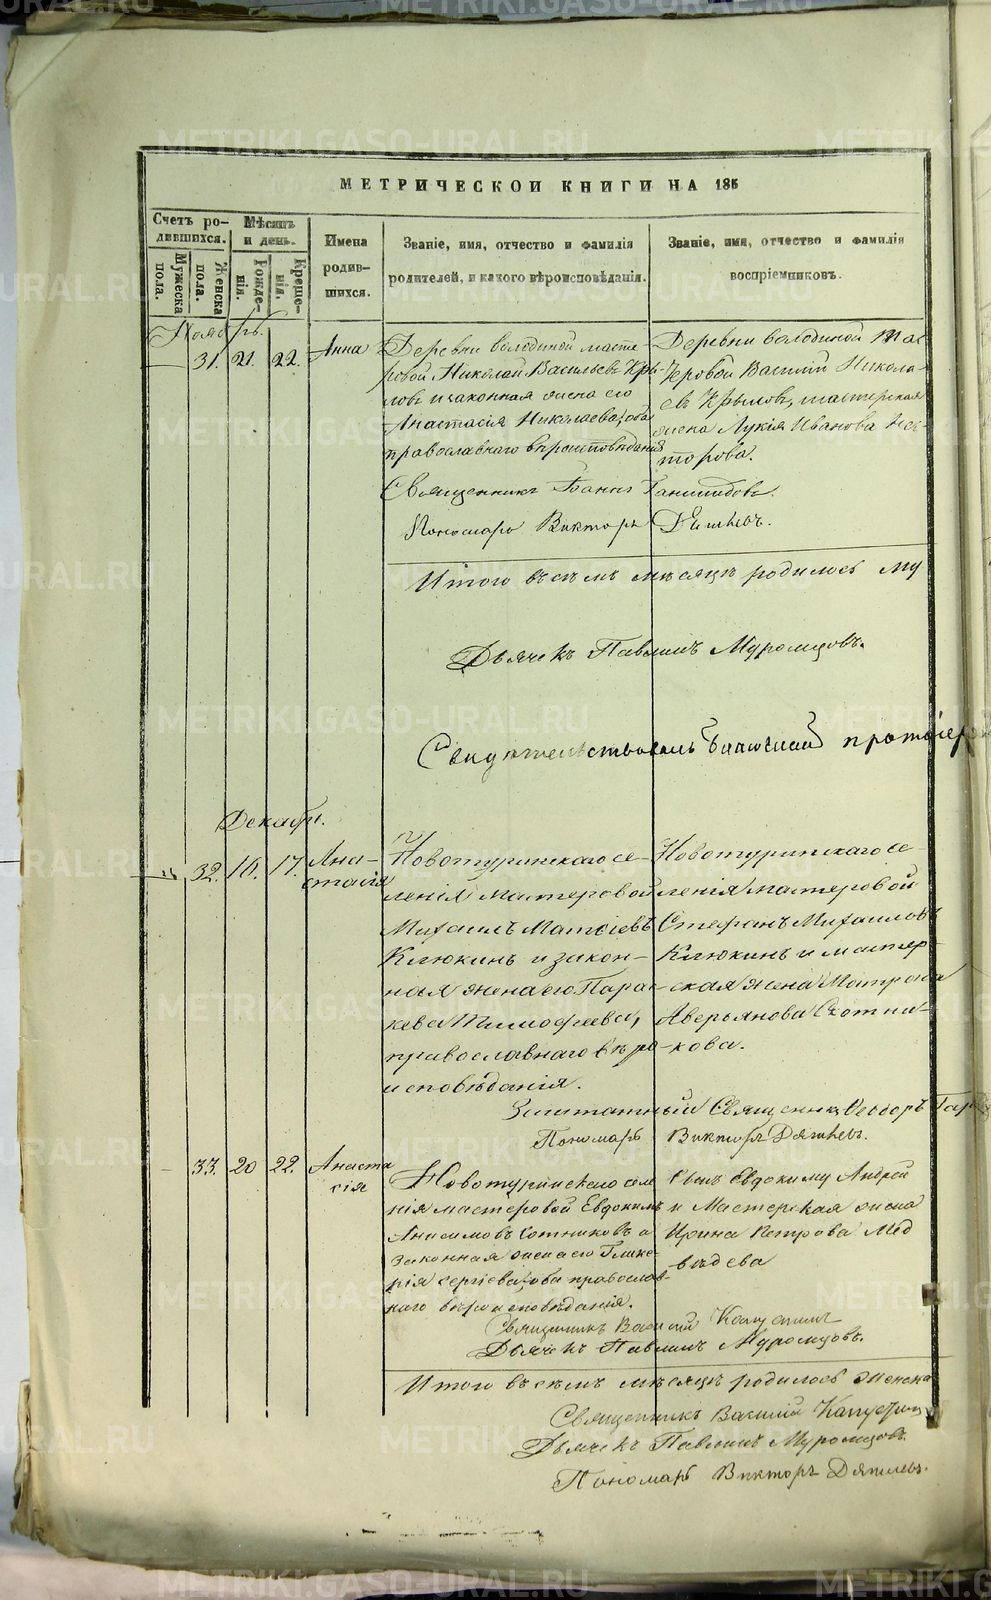 МЕТРИЧЕСКОЙ КНИГИ НА 185
Счетъ ро-
дившихся.
Мужеска
пола.
Женска
пола.
Мѣсяцъ
и день.
Рожде-
нія.
Креще-
нія.
Имена
родив-
шихся.
Званіе, имя, отчество и фамилія
родителей, и какого вѣроисповѣданія.
Званіе, имя, отчество и фамилія
воспріемниковъ.
Ноябрь.
31. 21. 22.
Анна
Деревни Володиной масте-
ровой Николай Васильевъ Кры-
ловъ и законная жена его
Анастасія Николаева, оба
православнаго вѣроисповѣданія
Деревни Володиной мас-
теровой Василій Никола-
евъ Крыловъ, мастерская
жена Лукія Иванова Нес-
торова.
Священникъ Іоаннъ
Пономарь Викторъ
Итого въ семъ мѣсяцѣ родилось му
Дьячекъ Павлинъ Муромцовъ.
Свидѣтельствовалъ Благочинный протоіерей
Декабрь.
32. 16. 17.
Ана-
стасія
Новотуринскаго се-
ленія мастеровой
Михаилъ Матѳіевъ
Клюкинъ и закон-
ная жена его Пара-
кева Тимофеева,
православнаго вѣро-
исповѣданія.
Новотуринскаго се-
ленія мастеровой
Стефанъ Михаиловъ
Клюкинъ и мастер-
ская жена Матрона
Аверьянова Сотни-
кова.
Заштатный Священникъ Ѳеодоръ
Пономарь Викторъ Дятлевъ.
33. 20 22.
Анаста
сія
Новотуринскаго селе
нія мастеровой Евдокимъ
Анисимовъ Сотниковъ и
законная жена его Глике-
рія Сергіева, оба православ-
наго вѣроисповѣданія.
Сынъ Евдокиму Андрей
и Мастерская жена
Ирина Петрова Мед
вѣдева
Священникъ Василій Капустинъ
Дьячекъ Павлинъ Муромцовъ.
Итого въ семъ мѣсяцѣ родилось женска
Священникъ Василій Капустинъ
Дьячекъ Павлинъ Муромцовъ.
Пономарь Викторъ Дятлевъ.
METRIKI.GASO-URAL.RU